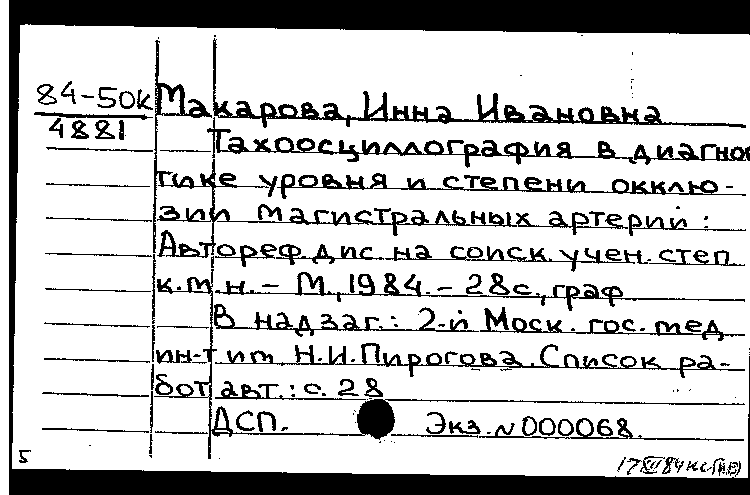 84-50к Макарова, Инна Ивановна
4881 Тахоосциллография в диагнос
тике уровня и степени окклю-
зии магистральных артерий :
Автореф. дис. на соиск. учен. степ
к.м.н. - М., 1984. - 28с., граф
В надзаг.: 2-й Моск. гос. мед
ин-т им. Н.И.Пирогова. Список ра-
бот авт.: с. 28
ДСП. Экз. N 000068.
5